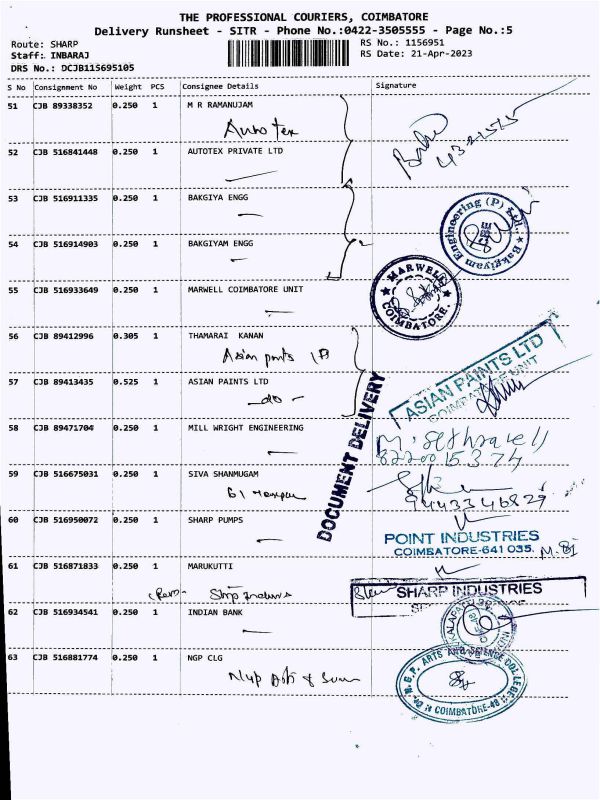 THE PROFESSIONAL COURIERS, COIMBATORE
Delivery Runsheet - SITR - Phone No.:0422-3505555 - Page No.:5
Route: SHARP
RS No.: 1156951
Staff: INBARAJ
RS Date: 21-Apr-2023
DRS No.: DCJB115695105
S No Consignment No Weight PCS Consignee Details Signature
51 CJB 89338352 0.250 1 M R RAMANUJAM
Autotex
52 CJB 516841448 0.250 1 AUTOTEX PRIVATE LTD
53 CJB 516911335 0.250 1 BAKGIYA ENGG
Bakgiyam Engineering (P) Ltd.,
54 CJB 516914903 0.250 1 BAKGIYAM ENGG
55 CJB 516933649 0.250 1 MARWELL COIMBATORE UNIT
MARWELL
COIMBATORE.
56 CJB 89412996 0.305 1 THAMARAI KANAN
Asian paints
ASIAN PAINTS LTD
COIMBATORE UNIT
57 CJB 89413435 0.525 1 ASIAN PAINTS LTD
- do -
DOCUMENT DELIVERY
58 CJB 89471704 0.250 1 MILL WRIGHT ENGINEERING
59 CJB 516675031 0.250 1 SIVA SHANMUGAM
9443346829
60 CJB 516950072 0.250 1 SHARP PUMPS
POINT INDUSTRIES
COIMBATORE-641 035.
61 CJB 516871833 0.250 1 MARUKUTTI
SHARP INDUSTRIES
62 CJB 516934541 0.250 1 INDIAN BANK
63 CJB 516881774 0.250 1 NGP CLG
N.G.P. ARTS AND SCIENCE COLLEGE
COIMBATORE-48